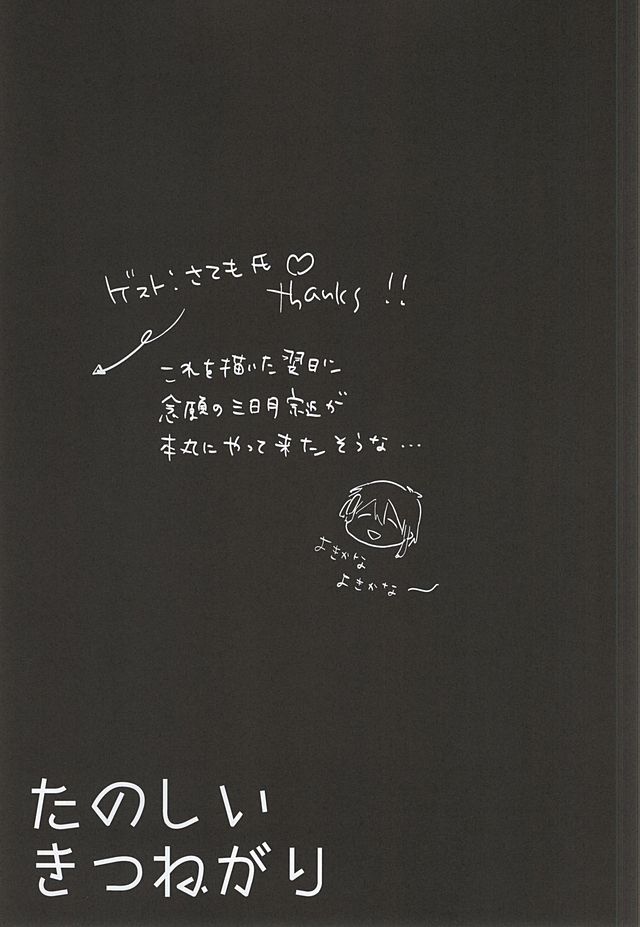 ゲスト:さても氏♡
thanks!!
これを描いた翌日に
念願の三日月宗近が
本丸にやって来たそうな…
よきかな
よきかな〜
たのしい
きつねがり